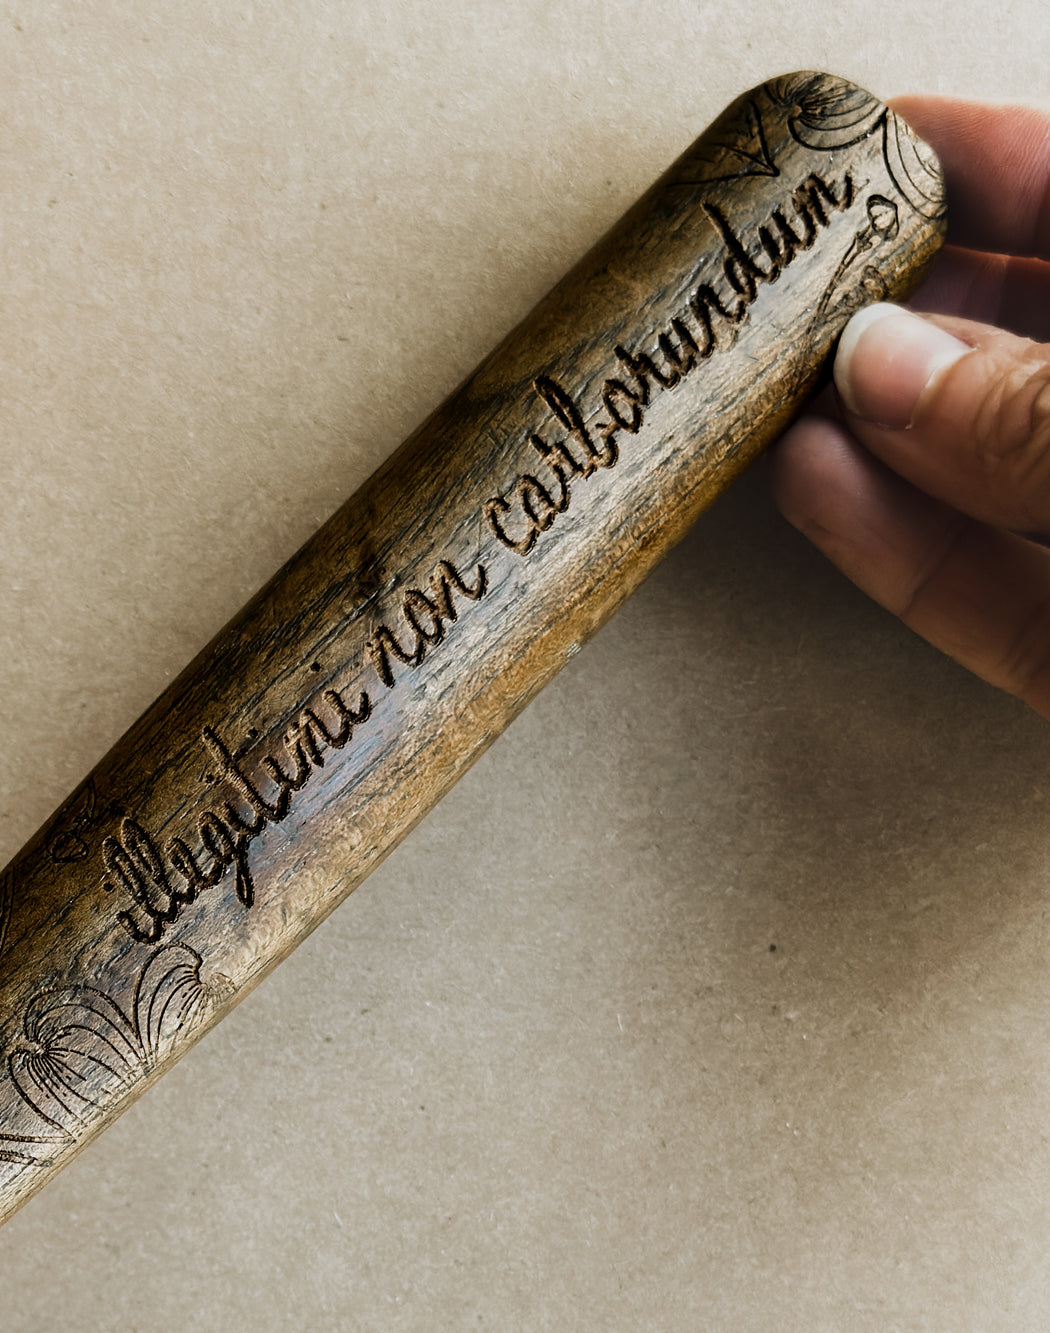 illegitimi non carborundum